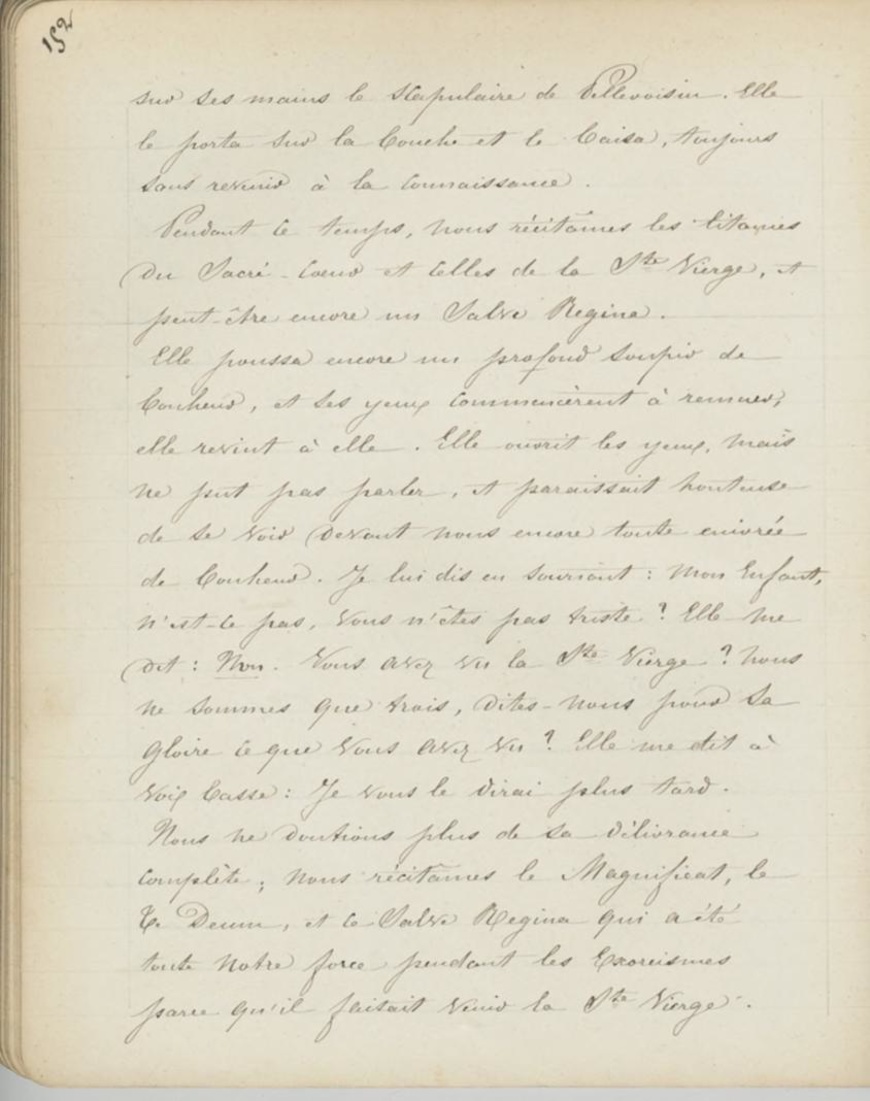 152
sur ses mains le scapulaire de Pellevoisin. Elle
le porta sur la bouche et le baisa, toujours
sans revenir à la connaissance.
Pendant ce temps, nous récitâmes les litanies
du Sacré-Cœur et celles de la Ste Vierge, et
peut-être encore un Salve Regina.
Elle poussa encore un profond soupir de
bonheur, et ses yeux commencèrent à remuer,
elle revint à elle. Elle ouvrit les yeux, mais
ne put pas parler, et paraissait honteuse
de se voir devant nous encore toute enivrée
de bonheur. Je lui dis en souriant : mon Enfant,
n'est-ce pas, vous n'êtes pas triste ? Elle me
dit : Non. Vous avez vu la Ste Vierge ? nous
ne sommes que trois, dites-nous pour sa
gloire ce que vous avez vu ? Elle me dit à
voix basse : Je vous le dirai plus tard.
Nous ne doutions plus de sa délivrance
complète ; nous récitâmes le Magnificat, le
Te Deum, et le Salve Regina qui a été
toute notre force pendant les Exorcismes
parce qu'il faitait venir la Ste Vierge.